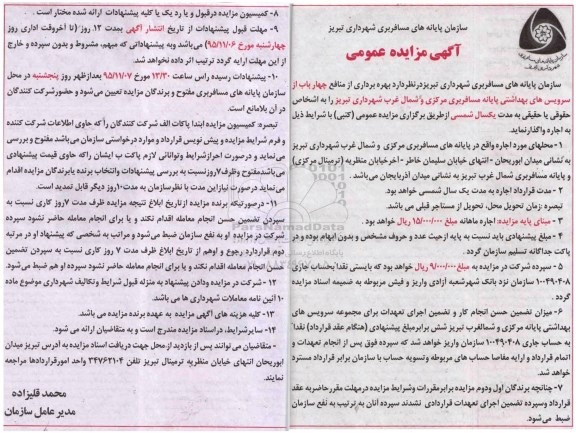 سازمان پایانه های مسافربری شهرداری تبریز
آگهی مزایده عمومی
سازمان پایانه های مسافربری شهرداری تبریز در نظر دارد بهره برداری از منافع چهار باب از
سرویس های بهداشتی پایانه مسافربری مرکزی و شمال غرب شهرداری تبریز را به اشخاص
حقوقی یا حقیقی به مدت یکسال شمسی از طریق برگزاری مزایده عمومی (کتبی) با شرایط ذیل
به اجاره واگذار نماید.
۱- محلهای مورد اجاره واقع در پایانه های مسافربری مرکزی و شمال غرب شهرداری تبریز
به نشانی میدان ابوریحان - انتهای خیابان سلیمان خاطر - آخر خیابان منظریه (ترمینال مرکزی)
و پایانه مسافربری شمال غرب تبریز به نشانی میدان آذربایجان می باشد.
۲- مدت قرارداد اجاره به مدت یک سال شمسی خواهد بود.
تبصره: زمان تحویل محل، تحویل از مستاجر قبلی می باشد.
۳- مبنای پایه مزایده: اجاره ماهانه مبلغ ۱۵/۰۰۰/۰۰۰ ریال خواهد بود.
۴- مبلغ پیشنهادی باید نسبت به پایه از حیث عدد و حروف مشخص و بدون ابهام بوده و در
پاکت جداگانه تسلیم سازمان گردد.
۵- سپرده شرکت در مزایده به مبلغ ۹/۰۰۰/۰۰۰ ریال خواهد بود که بایستی نقدا بحساب جاری
۱۰۰۴۹۰۴۰۸ سازمان نزد بانک شهر شعبه آزادی واریز و فیش مربوطه به ضمیمه اسناد مزایده
گردد.
۶- میزان تضمین حسن انجام کار و تضمین اجرای تعهدات برای مجموعه سرویس های
بهداشتی پایانه مرکزی و شمالغرب تبریز شش برابر مبلغ پیشنهادی (هنگام عقد قرارداد) نقدا
به حساب جاری ۱۰۰۴۹۰۴۰۸ سازمان واریز خواهد شد که سپرده فوق پس از انجام تعهدات و
اتمام قرارداد و ارایه مفاصا حساب های مربوطه و تسویه حساب با سازمان برابر قرارداد مسترد
خواهد شد.
۷- چنانچه برندگان اول و دوم مزایده برابر مقررات و شرایط مزایده در مهلت مقرر حاضر به عقد
قرارداد و سپرده تضمین اجرای تعهدات قراردادی نشدند سپرده آنان به ترتیب به نفع سازمان
ضبط می شود.
۸- کمیسیون مزایده در قبول و یا رد یک یا کلیه پیشنهادات ارائه شده مختار است.
۹- مهلت قبول پیشنهادات از تاریخ انتشار آگهی بمدت ۱۳ روز (تا آخر وقت اداری روز
چهارشنبه مورخ ۹۵/۱۱/۰۶) می باشد و به پیشنهاداتی که مبهم، مشروط و بدون سپرده و خارج
از این مهلت ارایه گردد ترتیب اثر داده نخواهد شد.
۱۰- پیشنهادات رسیده راس ساعت ۱۳/۳۰ مورخ ۹۵/۱۱/۰۷ بعدازظهر روز پنجشنبه در محل
سازمان پایانه های مسافربری مفتوح و برندگان مزایده تعیین می شود و حضور شرکت کنندگان
در آن بلامانع است.
تبصره: کمیسیون مزایده ابتدا پاکات الف شرکت کنندگان را که حاوی اطلاعات شرکت کننده
و فرم شرایط مزایده و پیش نویس قرارداد و موارد درخواستی سازمان می باشد مفتوح و بررسی
می نماید و در صورت احراز شرایط و توانائی لازم پاکت ب ایشان را که حاوی قیمت پیشنهادی
می باشد مفتوح و ظرف ۷ روز نسبت به بررسی پیشنهادات و انتخاب برنده یا برندگان مزایده اقدام
می نماید در صورت نیاز این مدت با نظر سازمان به مدت ۱۰ روز دیگر قابل تمدید است.
۱۱- در صورتیکه برنده مزایده از تاریخ ابلاغ نتیجه مزایده ظرف مدت ۷ روز کاری نسبت به
سپردن تضمین حسن انجام معامله اقدام نکند و یا برای انجام معامله حاضر نشود سپرده
شرکت در مزایده او به نفع سازمان ضبط می شود و مراتب به شخصی که پیشنهاد او در مرتبه
دوم قرار دارد رجوع و اوهم از تاریخ ابلاغ ظرف مدت ۷ روز کاری نسبت به سپردن تضمین
حسن انجام معامله اقدام نکند و یا برای انجام معامله حاضر نشود سپرده او هم ضبط می شود.
۱۲- شرکت در مزایده و دادن پیشنهاد به منزله قبول شرایط و تکالیف شهرداری موضوع ماده
۱۰ آئین نامه معاملات شهرداری ها می باشد.
۱۳- کلیه هزینه های آگهی مزایده به عهده برنده مزایده می باشد.
۱۴- سایر شرایط، در اسناد مزایده مندرج است و به متقاضیان ارائه می شود.
- متقاضیان می توانند پس از بازدید از محل جهت دریافت اسناد مزایده به آدرس تبریز میدان
ابوریحان انتهای خیابان منظریه ترمینال تبریز تلفن ۳۴۷۶۲۱۰۴ واحد امور قراردادها مراجعه
نمایند.
محمد قلیزاده
مدیر عامل سازمان